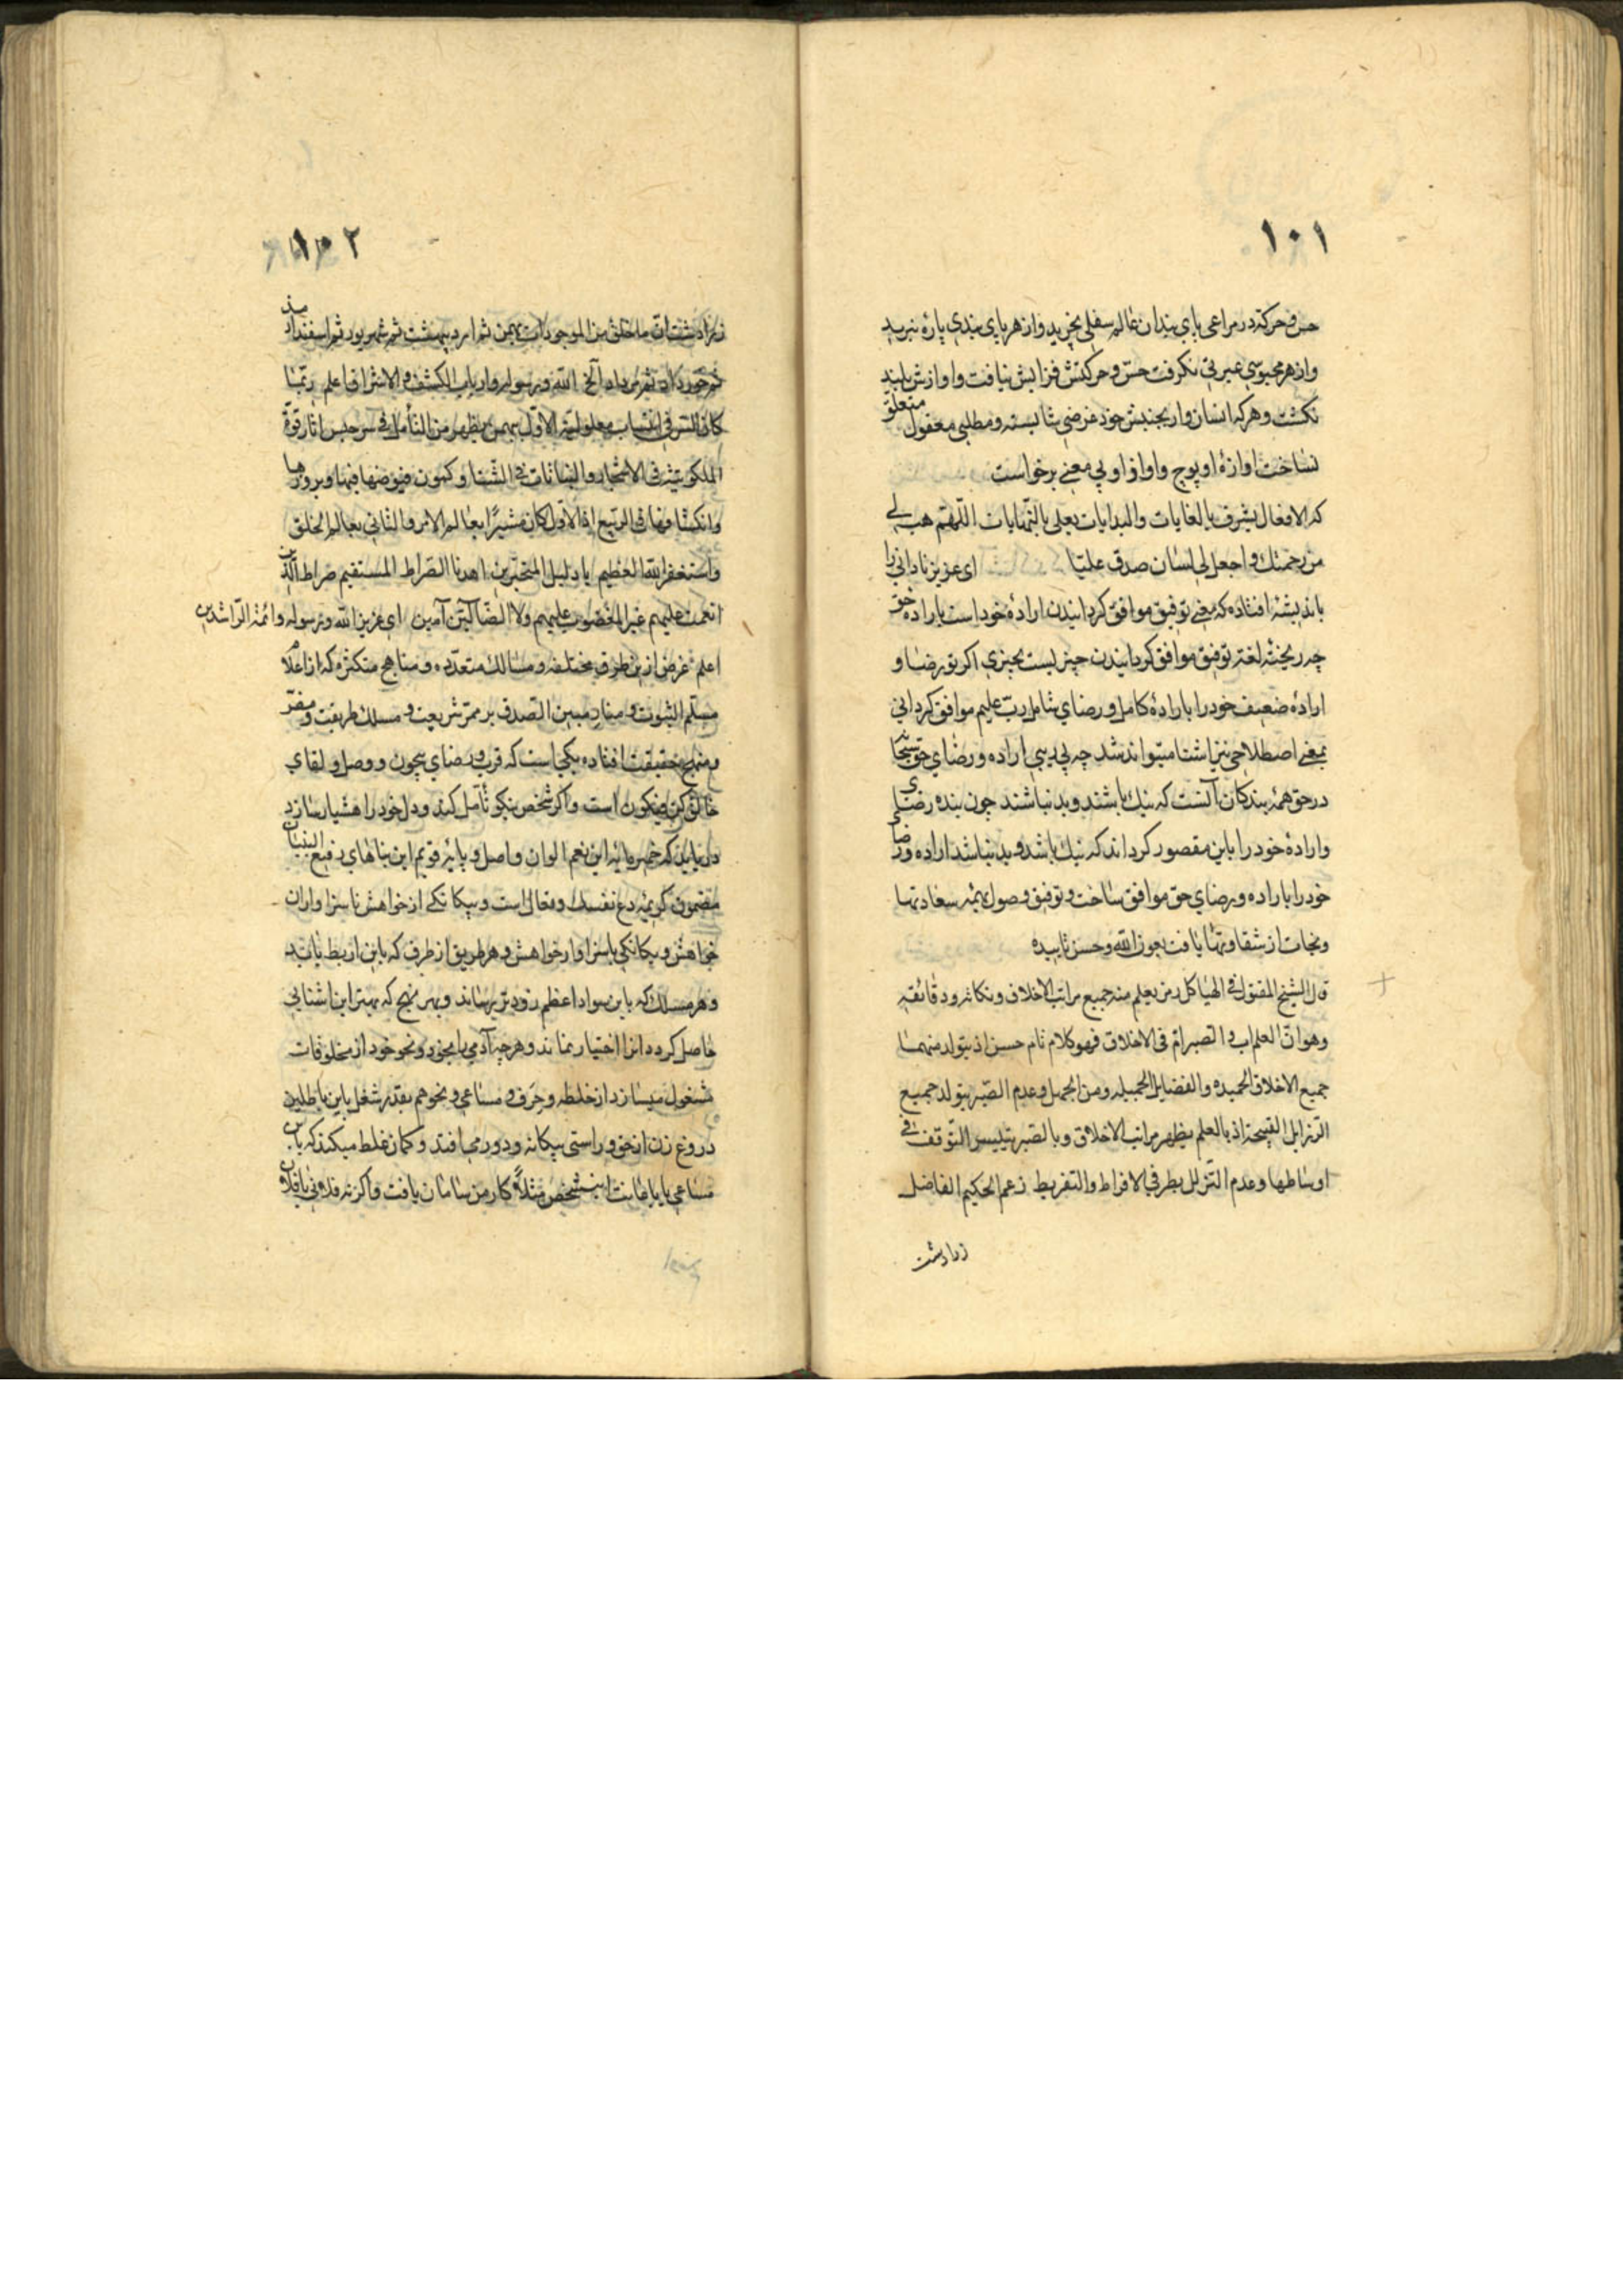 ١٠١
حس و حرکته در مراعی پای بندان عالم سفلی بخزید و از هر پای بندی پارهٔ نبرید
و از هر محبوسی عبرتی نکرفت حسّ و حرکتش فزایش نیافت و اوازش بلند
نکشت و هر که انسان وار بجنبش خود غرضی شایسته و مطلبی معقول متعلّق
نساخت اوازهٔ او پوچ و اواز او بی معنی برخواست
که الافعال یشرف بالغایات والبدایات یعلی بالنّهایات اللّهمّ هب لی
من رحمتک واجعل لی لسان صدق علیّا ای عزیز نادانی را
باندیشهٔ افتاده که معنی توفیق موافق کردانیدن ارادهٔ خود است بارادهٔ حق
چه ریخته لغة توفیق موافق کردانیدن چیزیست بچیزی اکر تو رضا و
ارادهٔ ضعیف خود را بارادهٔ کامل و رضای شامل ربّ علیم موافق کردانی
بمعنی اصطلاحی نیز اشنا میتواند شد چه پی بری اراده و رضای حق سبحا
در حق همهٔ بندکان آنست که نیک باشند و بد نباشند چون بنده رضای
و ارادهٔ خود را باین مقصور کرداند که نیک باشد و بد نباشد اراده و رضا
خود را باراده و رضای حق موافق ساخت و توفیق وصول بهمهٔ سعادتها
و نجات از شقاوتها یافت بعون الله و حسن تاییده
قال الشیخ المقتول فی الهیاکل رمز یعلم منه جمیع مراتب الاخلاق و نکاته و دقائقه
وهو انّ العلم اب و الصبر امّ فی الاخلاق فهو کلام تام حسن اذ یتولد منهما
جمیع الاخلاق الحمیده والفضایل الجمیله ومن الجهل وعدم الصّبر یتولد جمیع
الرّزایل القبیحة اذ بالعلم یظهر مراتب الاخلاق وبالصّبر یتیسر التّوقف فی
اوساطها وعدم التّزلزل بطرفی الافراط والتفریط زعم الحکیم الفاضل
زرادشت
١٠٢
زرادشت انّ ما خلق من الموجودات بهمن ثم اردیبهشت ثم شهریور ثم اسفندارمذ
ثم خورداد ثم مرداد الخ الله ورسوله وارباب الکشف والاشراق اعلم ربّما
کان السّر فی انتساب معلولیّته الاوّل بهمن یظهر من التأمل فی سرّ حبس اثار قوّة
الملکوتیّه فی الاشجار والنباتات فی الشتا وکمون فیوضها فیها وبروزها
وانکشافها فی الرّبیع اذ الاوّل کان مشیرًا بعالم الامر والثانی بعالم الخلق
واستغفر الله العظیم یا دلیل المتحیّرین اهدنا الصّراط المستقیم صراط الّذین
انعمت علیهم غیر المغضوب علیهم ولا الضّآلّین آمین ای عزیز الله ورسوله وائمّة الرّاشدین
اعلم غرض ازین طرق مختلفه و مسالک متعدّده و مناهج متکثّره که از اعلام
مسلّم الثبوت و منار مبین الصّدق بر ممرّ شریعت و مسلک طریقت و مفرّ
و منهج حقیقت افتاده یکیست که قرب و رضای بیچون و وصل و لقای
خالق کن فیکون است و اکر شخص نیکو تأمل کند و دل خود را هشیار سازد
در یابد که خمیر مایهٔ این نعم الوان و اصل و پایهٔ قویم این بناهای رفیع البنیان
مضمون کریمهٔ دع نفسک و تعال است و بیکانکی از خواهش ناسزا و اران
خواهش و بیکانکی باسزاوار خواهش و هر طریق از طرق که باین اربط یابد
و هر مسلک که باین سواد اعظم زودتر رساند و بهر منهج که بهتر این اشنایی
حاصل کردد انرا اختیار نماند و هر چه آدمی را بخود و نحو خود از مخلوقات
مشغول میسازد از خلطه و حرف و مساعی و نحوهم بقدر شغل باین باطلین
دروغ زن از حق و راستی بیکانه و دور می افتد و کمان غلط میکند که باین
مساعی یا باعانت این شخص مثلاً کار من سامان یافت و اکر نه فلانی یا فلان